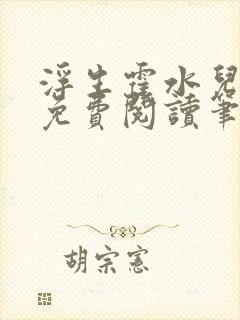 浮生霪水兒
免費閱讀筆
胡宗憲